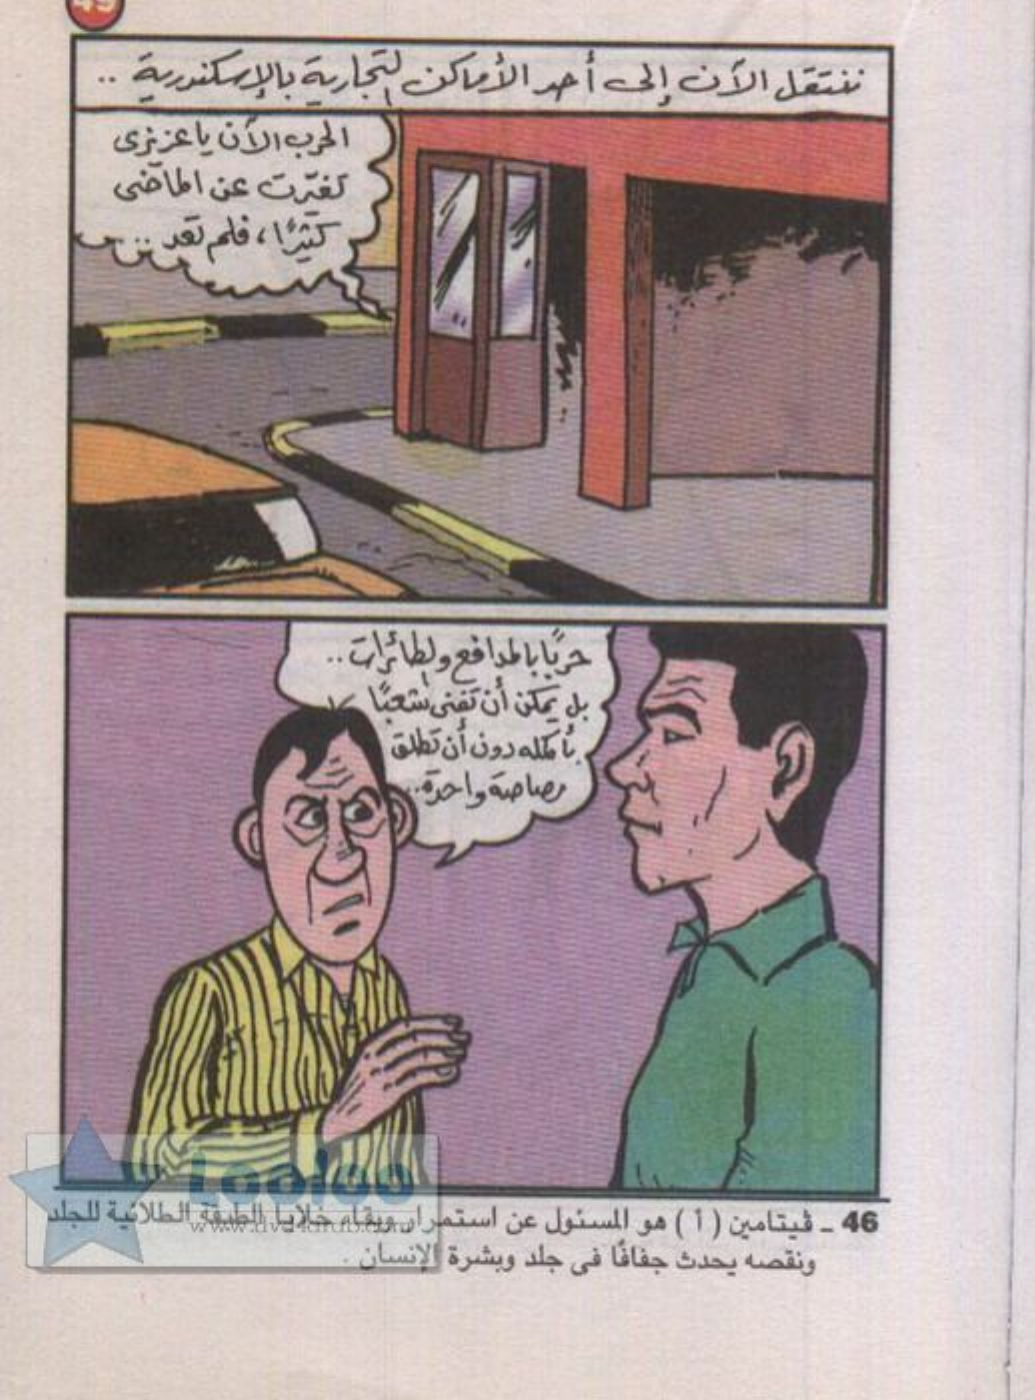 49
ننتقل الآن إلى أحد الأماكن التجارية بالإسكندرية ..
الحرب الآن يا عزيزى
تغيرت عن الماضى
كثيرًا ، فلم تعد ..
حربًا بالمدافع والطائرات ..
بل يمكن أن تفنى شعبًا
بأكمله دون أن تطلق
رصاصة واحدة ..
46 ـ ڤيتامين ( أ ) هو المسئول عن استمرار وبقاء خلايا الطبقة الطلائية للجلد
ونقصه يحدث جفافًا فى جلد وبشرة الإنسان .
Looloo